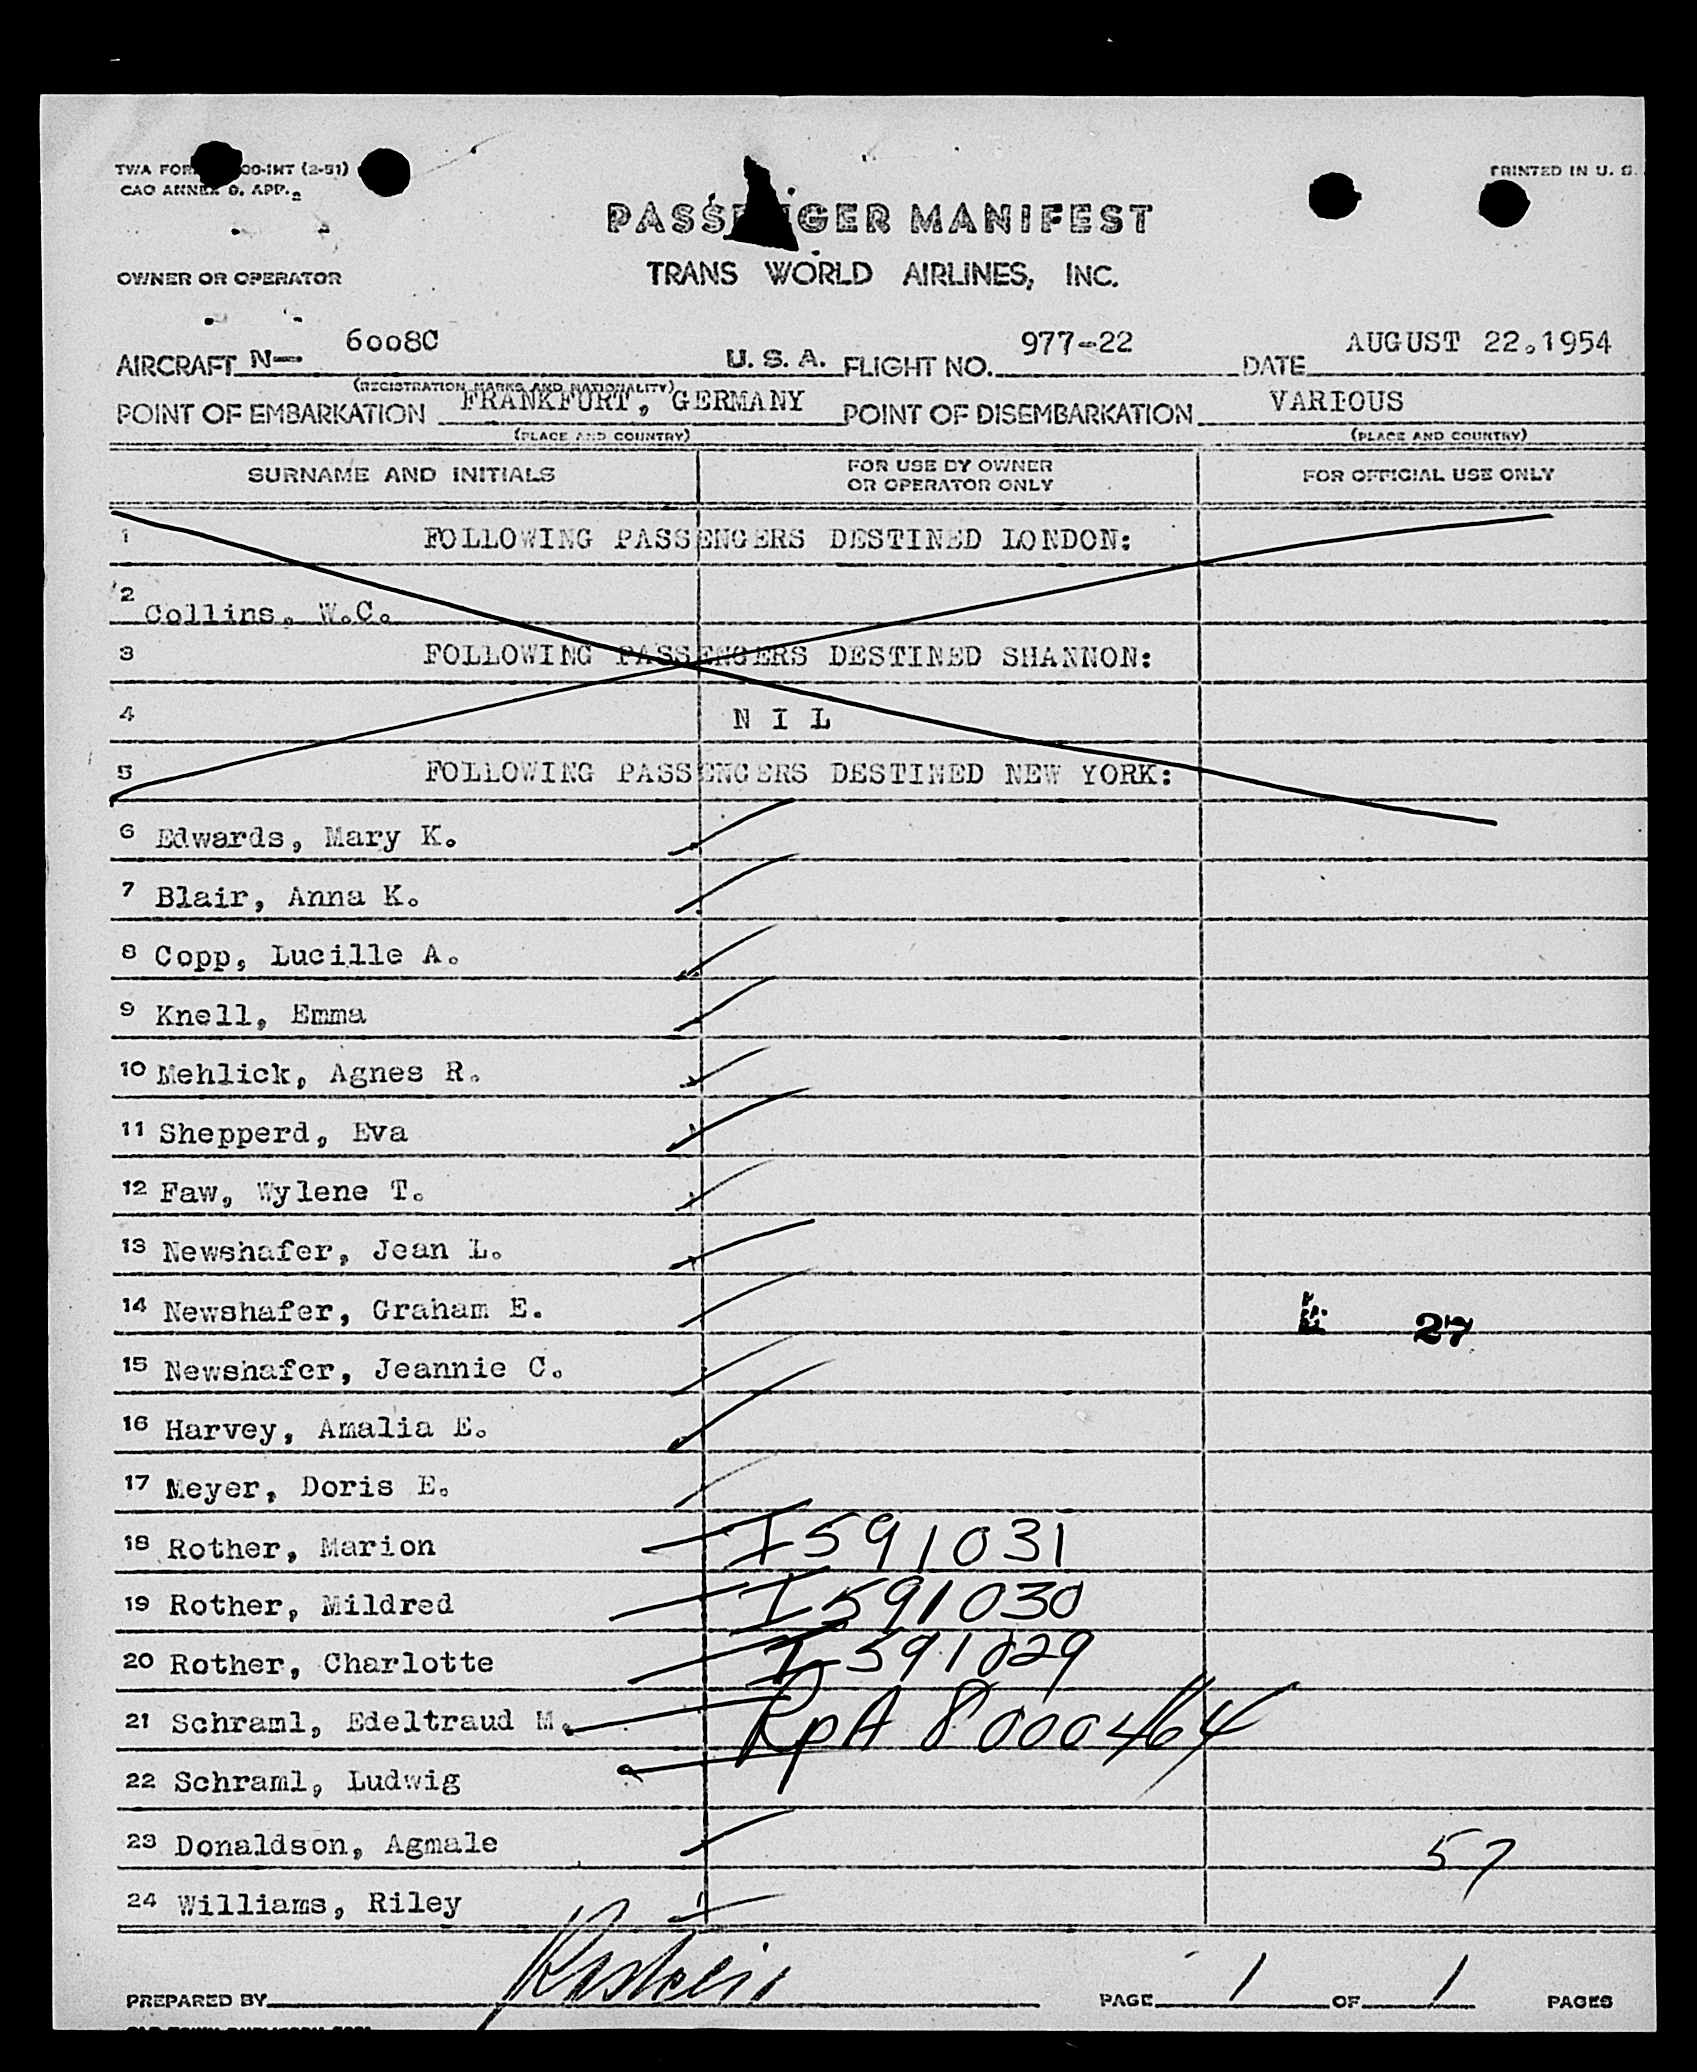 TWA FOR 00-INT (2-51)
CAO ANNEX 9, APP. 2
PRINTED IN U. S.
PASSENGER MANIFEST
TRANS WORLD AIRLINES, INC.
OWNER OR OPERATOR
AIRCRAFT N— 6008C U. S. A. FLIGHT NO. 977-22 DATE AUGUST 22.1954
(REGISTRATION MARKS AND NATIONALITY)
POINT OF EMBARKATION FRANKFURT, GERMANY POINT OF DISEMBARKATION VARIOUS
(PLACE AND COUNTRY) (PLACE AND COUNTRY)
SURNAME AND INITIALS FOR USE BY OWNER OR OPERATOR ONLY FOR OFFICIAL USE ONLY
1 FOLLOWING PASSENGERS DESTINED LONDON:
2 Collins, W.C.
3 FOLLOWING PASSENGERS DESTINED SHANNON:
4 N I L
5 FOLLOWING PASSENGERS DESTINED NEW YORK:
6 Edwards, Mary K.
7 Blair, Anna K.
8 Copp, Lucille A.
9 Knell, Emma
10 Mehlick, Agnes R.
11 Shepperd, Eva
12 Faw, Wylene T.
13 Newshafer, Jean L.
14 Newshafer, Graham E. 27
15 Newshafer, Jeannie C.
16 Harvey, Amalia E.
17 Meyer, Doris E.
18 Rother, Marion I 591031
19 Rother, Mildred I 591030
20 Rother, Charlotte I-591029
21 Schraml, Edeltraud M. RpA 8000464
22 Schraml, Ludwig
23 Donaldson, Agmale 57
24 Williams, Riley
PREPARED BY PAGE 1 OF 1 PAGES